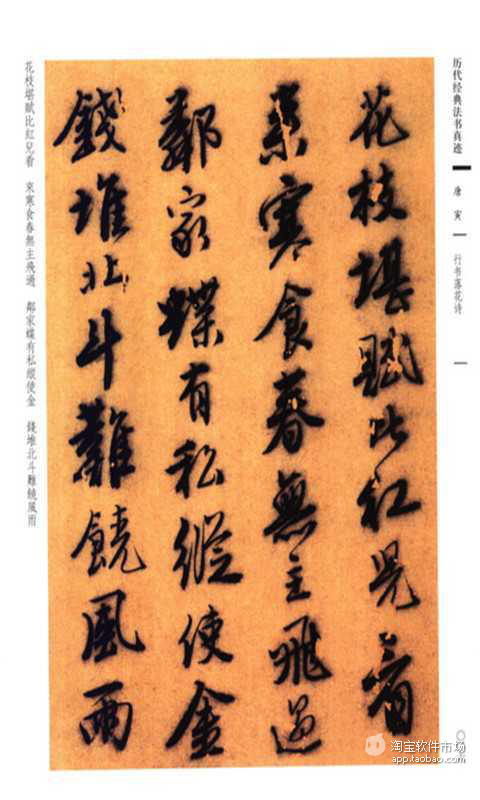 历代经典法书真迹
唐寅
行书落花诗
花枝堪賦比紅兒看
來寒食春無主飛過
鄰家蝶有私縱使金
錢堆北斗難饒風雨
花枝堪賦比紅兒看 來寒食春無主飛過 鄰家蝶有私縱使金 錢堆北斗難饒風雨
淘宝软件市场
app.taobao.com